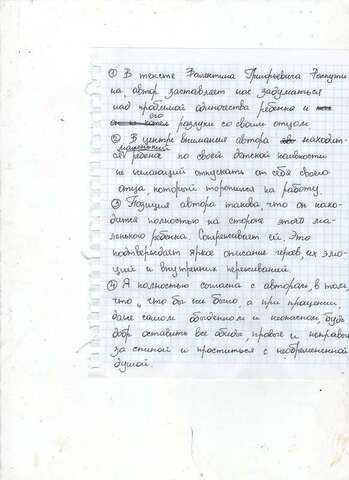 ① В тексте Валентина Григорьевича Распути
на, автор заставляет нас задуматься
над проблемой одиночества ребенка и
его разлуки со своим отцом.
② В центре внимания автора находит-
ся маленький ребенок по своей детской наивности
не желающий отпускать от себя своего
отца, который торопится на работу.
③ Позиция автора такова, что он нахо-
дится полностью на стороне этого ма-
ленького ребенка. Сопереживает ей. Это
подтверждает яркое описание героев, их эмо-
ций и внутренних переживаний.
④ Я полностью согласна с автором, в том,
что, что бы ни было, а при прощании,
даже самом обыденном и неопасном, будь
добр оставить все обиды, правые и неправые
за спиной и проститься с необремененной
душой.